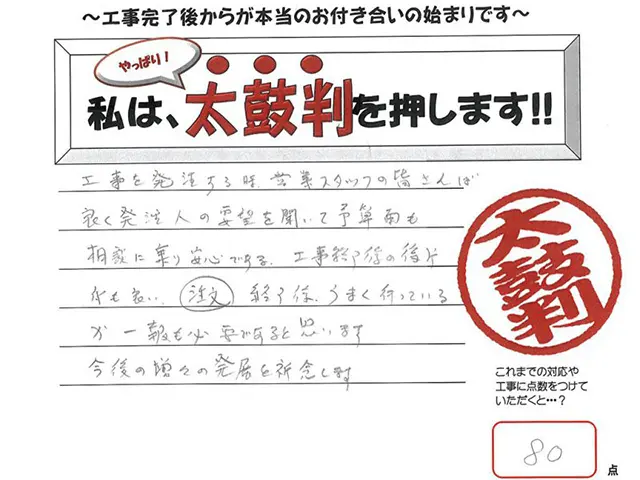 ～工事完了後からが本当のお付き合いの始まりです～
やっぱり！
私は、太鼓判を押します!!
工事を発注する時、営業スタッフの皆さんは
良く発注人の要望を聞いて予算面も
相談に乗り安心である。工事終了後の後片
付も良い。注文 終了後、うまく行っている
か一報も必要であると思います
今後の増々の発展を祈念します
太鼓判
これまでの対応や
工事に点数をつけて
いただくと…？
80
点